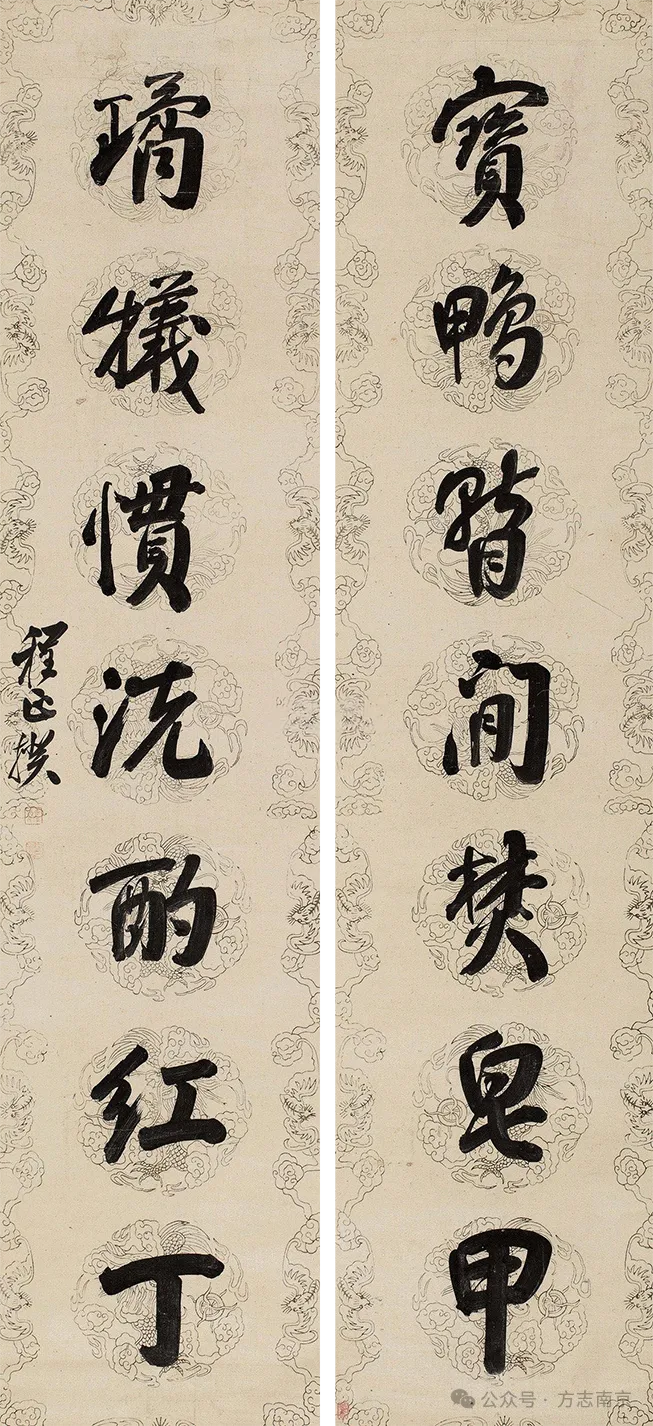 寶鴨暫間焚皂甲
璚犠慣洗酌紅丁
程正揆
公众号 · 方志南京